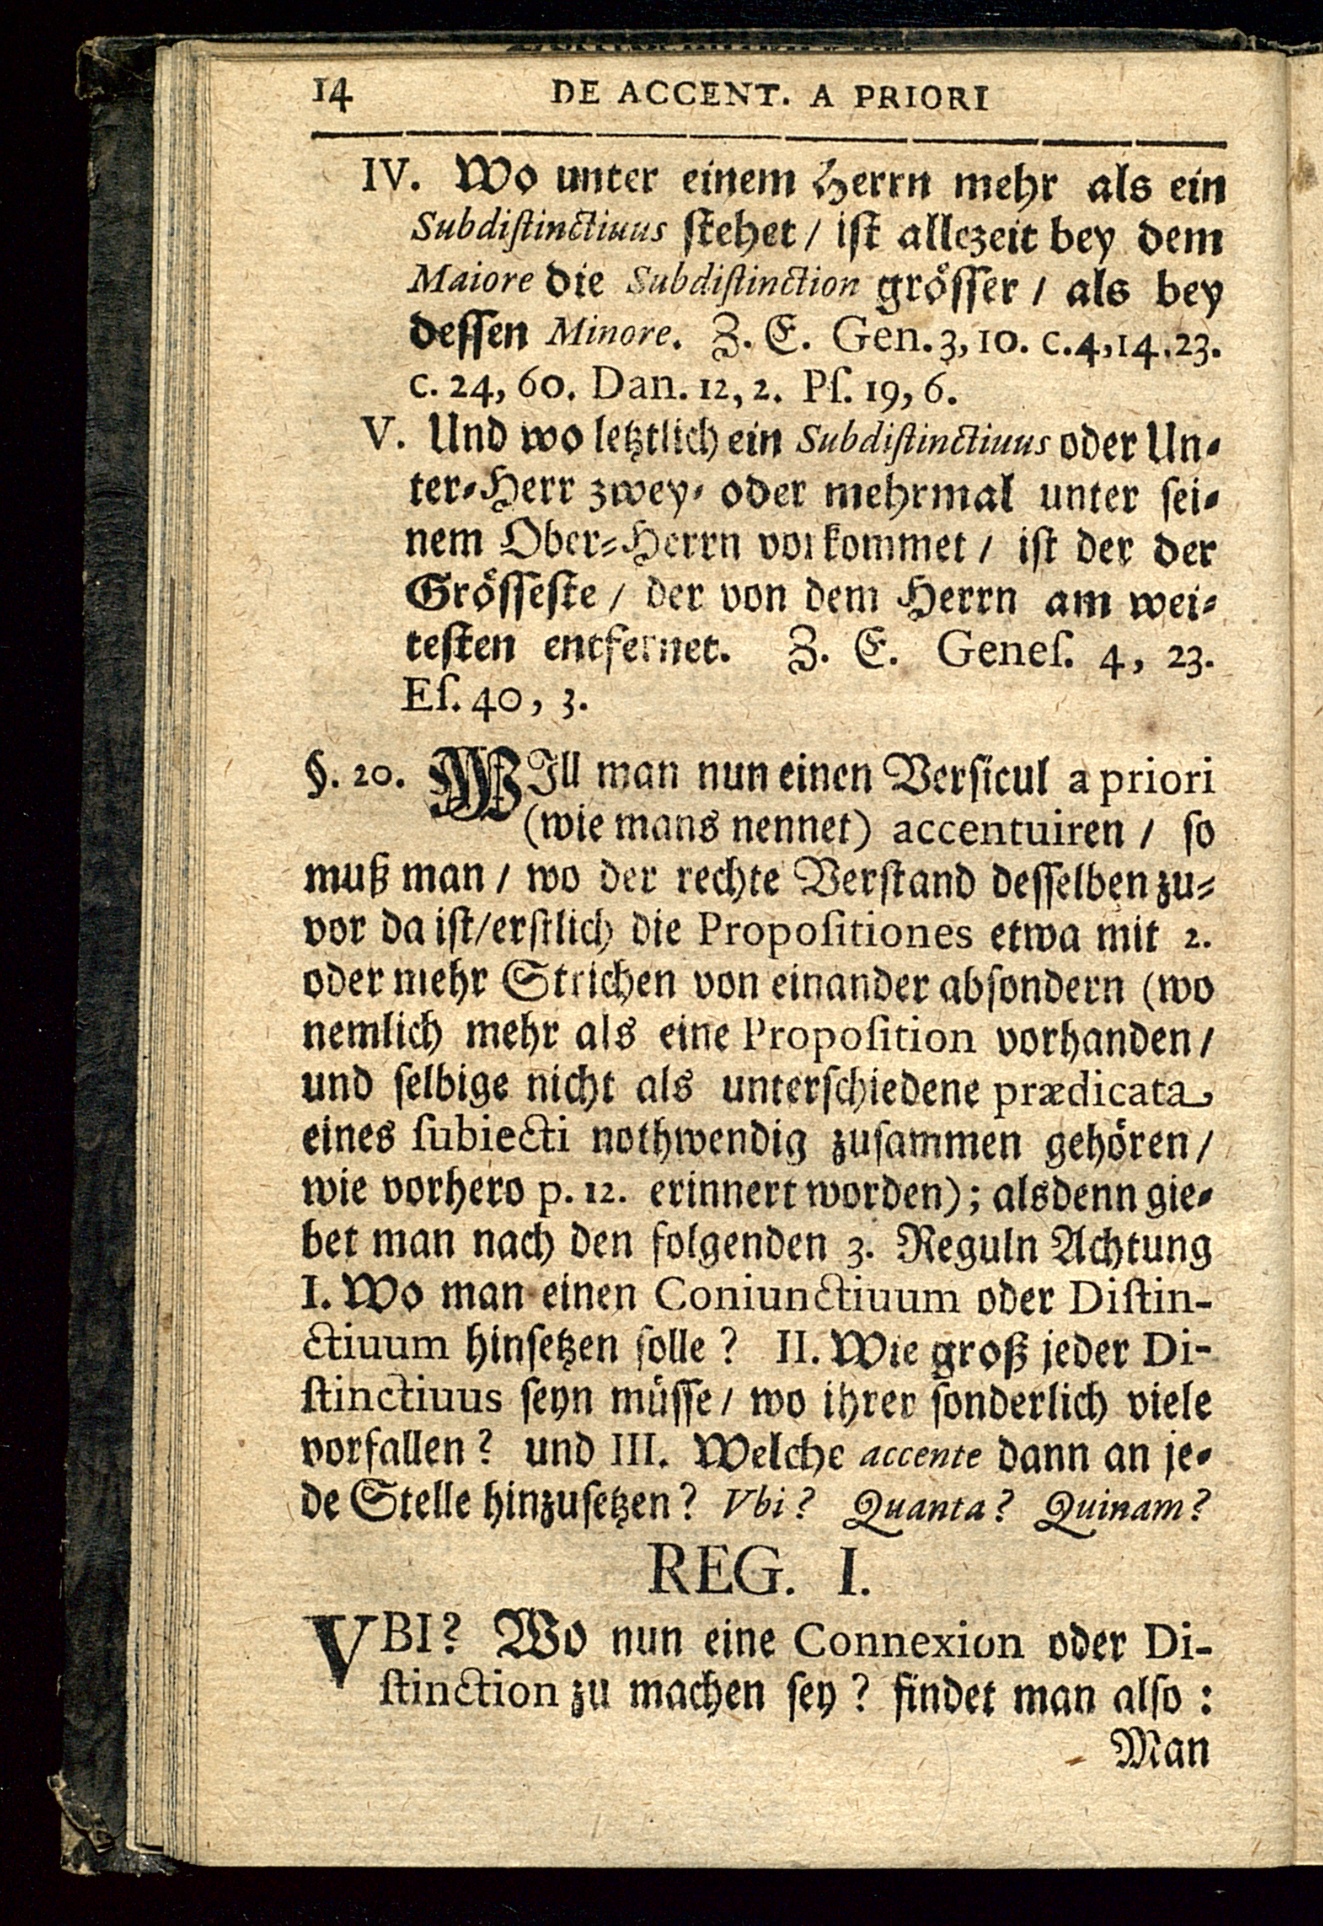 14 DE ACCENT. A PRIORI
IV. Wo unter einem Herrn mehr als ein
Subdiſtinctiuus ſtehet / iſt allezeit bey dem
Maiore die Subdiſtinction gröſſer / als bey
deſſen Minore. Z. E. Gen. 3, 10. c. 4, 14. 23.
c. 24, 60. Dan. 12, 2. Pſ. 19, 6.
V. Und wo letztlich ein Subdiſtinctiuus oder Un-
ter-Herr zwey- oder mehrmal unter ſei-
nem Ober-Herrn vorkommet / iſt der der
Gröſſeſte / der von dem Herrn am wei-
teſten entfernet. Z. E. Geneſ. 4, 23.
Eſ. 40, 3.
§. 20. WIll man nun einen Verſicul a priori
(wie mans nennet) accentuiren / ſo
muß man / wo der rechte Verſtand deſſelben zu-
vor da iſt/erſtlich die Propoſitiones etwa mit 2.
oder mehr Strichen von einander abſondern (wo
nemlich mehr als eine Propoſition vorhanden /
und ſelbige nicht als unterſchiedene prædicata
eines ſubiecti nothwendig zuſammen gehören /
wie vorhero p. 12. erinnert worden) ; alsdenn gie-
bet man nach den folgenden 3. Reguln Achtung
I. Wo man einen Coniunctiuum oder Diſtin-
ctiuum hinſetzen ſolle ? II. Wie groß jeder Di-
ſtinctiuus ſeyn müſſe / wo ihrer ſonderlich viele
vorfallen ? und III. Welche accente dann an je-
de Stelle hinzuſetzen ? Vbi ? Quanta ? Quinam ?
REG. I.
VBI ? Wo nun eine Connexion oder Di-
ſtinction zu machen ſey ? findet man alſo :
Man